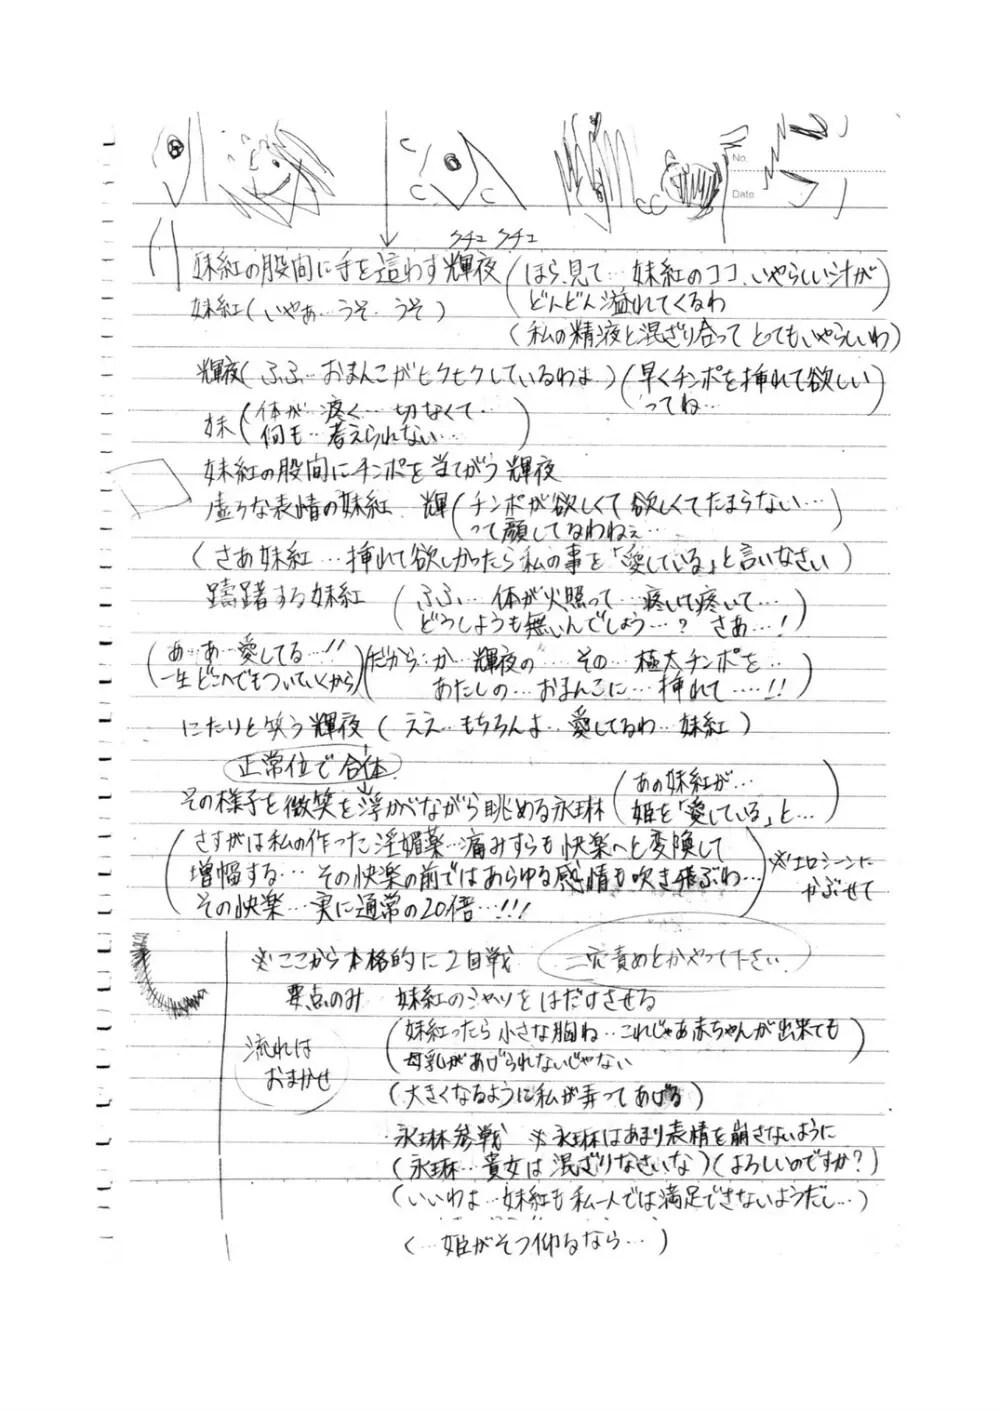 No.
Date
クチュ クチュ
妹紅の股間に手を這わす輝夜 (ほら、見て…妹紅のココ、いやらしい汁が
どんどん溢れてくるわ)
妹紅(いやぁ…うそ…うそ)
(私の精液と混ざり合ってとてもいやらしいわ)
輝夜(ふふ…おまんこがヒクヒクしているわよ)(早くチンポを挿れて欲しい
ってね…)
妹(体が…疼く…切なくて…
何も…考えられない…)
妹紅の股間にチンポを当てがう輝夜
虚ろな表情の妹紅 輝(チンポが欲しくて欲しくてたまらない…
って顔してるわねぇ…)
(さあ妹紅…挿れて欲しかったら私の事を「愛している」と言いなさい)
躊躇する妹紅 (ふふ…体が火照って…疼いて疼いて…
どうしようも無いんでしょう…? さあ…!)
(あ…あ…愛してる…!!
一生どこへでもついていくから)
(だから…か…輝夜の…その…極太チンポを…
あたしの…おまんこに…挿れて……!!)
にたりと笑う輝夜 (ええ…もちろんよ…愛してるわ…妹紅)
正常位で合体
その様子を微笑を浮かべながら眺める永琳 (あの妹紅が…
姫を「愛している」と…)
(さすがは私の作った淫媚薬…痛みすらも快楽へと変換して
増幅する…その快楽の前ではあらゆる感情も吹き飛ぶわ…
その快楽…実に通常の20倍…!!!)
※エロシーンに
かぶせて
※ここから本格的に2回戦
二穴責めとかやって下さい
要点のみ 妹紅のシャツをはだけさせる
流れは
おまかせ
(妹紅ったら小さな胸ね…これじゃあ赤ちゃんが出来ても
母乳があげられないじゃない)
(大きくなるように私が弄ってあげる)
永琳参戦 ※永琳はあまり表情を崩さないように
(永琳…貴女は混ざりなさいな)(よろしいのですか?)
(いいわよ…妹紅も私一人では満足できないようだし…)
(…姫がそう仰るなら…)